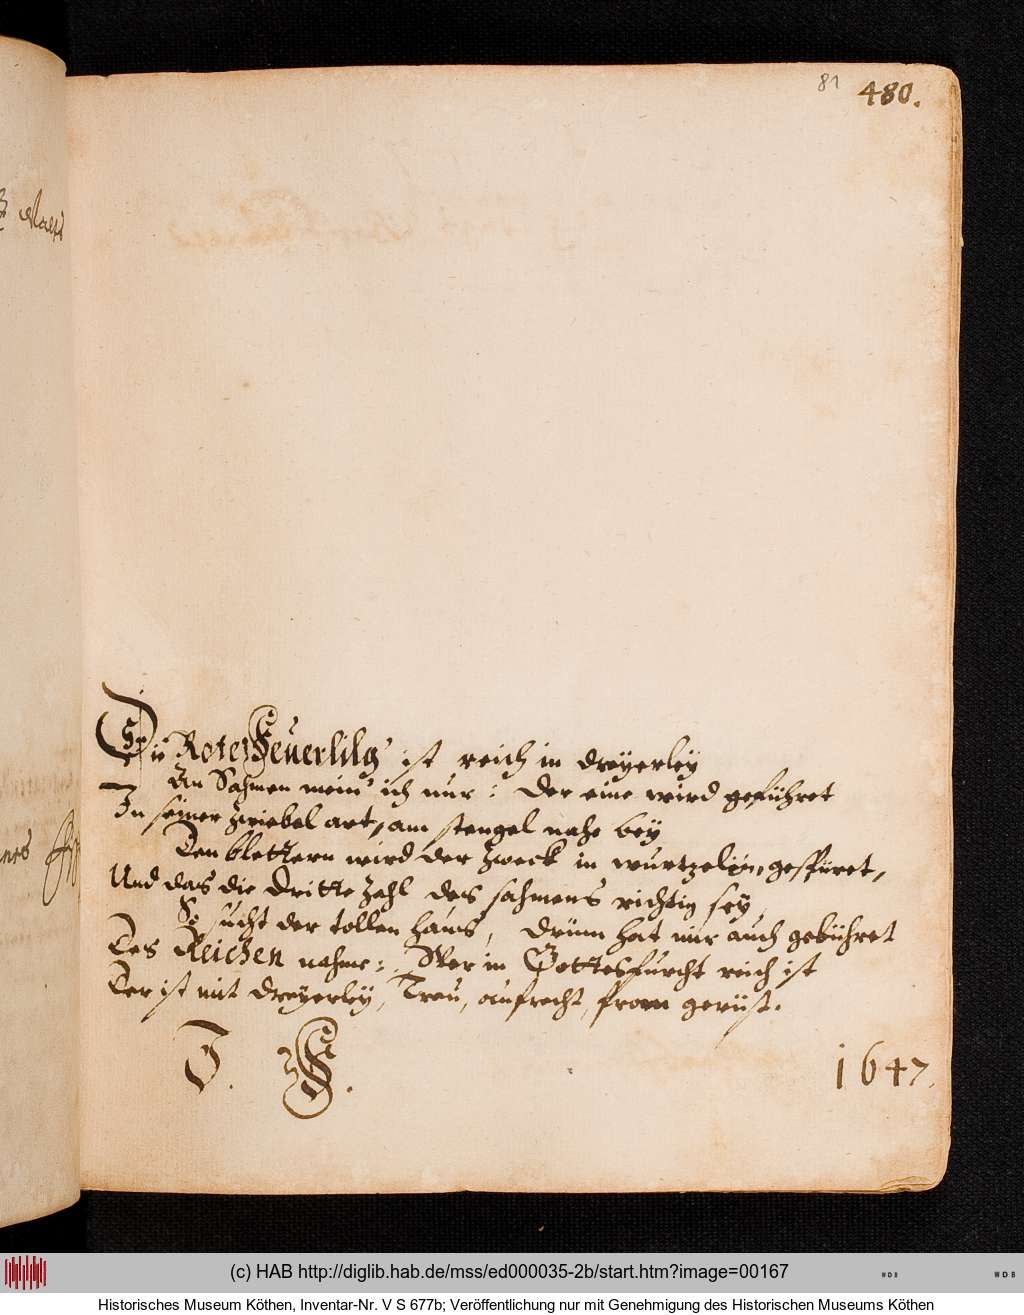 81 480.
Die Rote Feuerlilg' ist reich in dreyerley
An Sahmen mein' ich nur: Der eine wird geführet
In seiner zwiebel art, am stengel nahe bey
Den blettern wird der zweck in wurtzelin, gespüret,
Und das die dritte zahl des sahmens richtig sey
So sucht der tollen haus, drüm hat mir auch gebühret
Des Reichen nahme: Wer in Gottesfurcht reich ist
Der ist mit dreyerley, Treu, aufrecht, from gerüst.
1647.
(c) HAB http://diglib.hab.de/mss/ed000035-2b/start.htm?image=00167
Historisches Museum Köthen, Inventar-Nr. V S 677b; Veröffentlichung nur mit Genehmigung des Historischen Museums Köthen